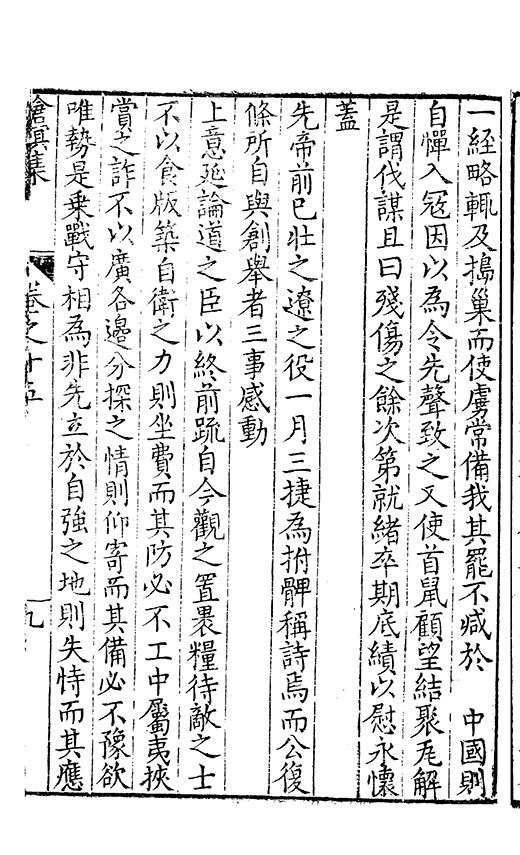 一經略輒及搗巢而使虜常備我其罷不減於　中國則
自憚入冦因以為令先聲致之又使首鼠顧望結聚瓦解
是謂伐謀且曰殘傷之餘次第就緒卒期底績以慰永懷
蓋
先帝前已壯之遼之役一月三捷為拊髀稱詩焉而公復
條所自與創舉者三事感動
上意延論道之臣以終前疏自今觀之置褁糧待敵之士
不以食版築自衛之力則坐費而其防必不工中屬夷挾
賞之詐不以廣各邊分探之情則仰寄而其備必不豫欲
唯勢是乗戰守相為非先立於自強之地則失恃而其應
滄溟集
卷之十五
九